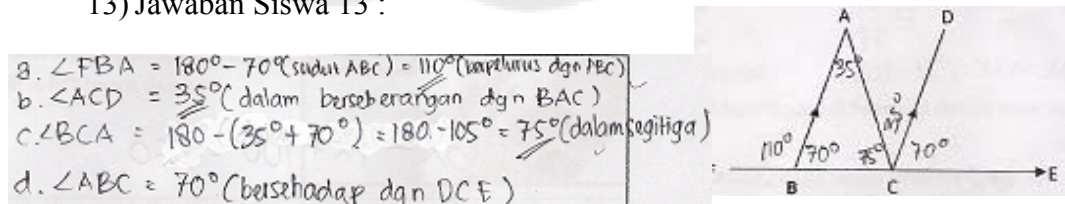 13) Jawaban Siswa 13 :
a. ∠FBA = 180° - 70° (sudut ABC) = 110° (berpelurus dgn ABC)
b. ∠ACD = 35° (dalam berseberangan dgn BAC)
c. ∠BCA = 180 - (35° + 70°) = 180 - 105° = 75° (dalam segitiga)
d. ∠ABC = 70° (bersehadap dgn DCE)
A D
35°
35°
110° 70° 75° 70°
B C E